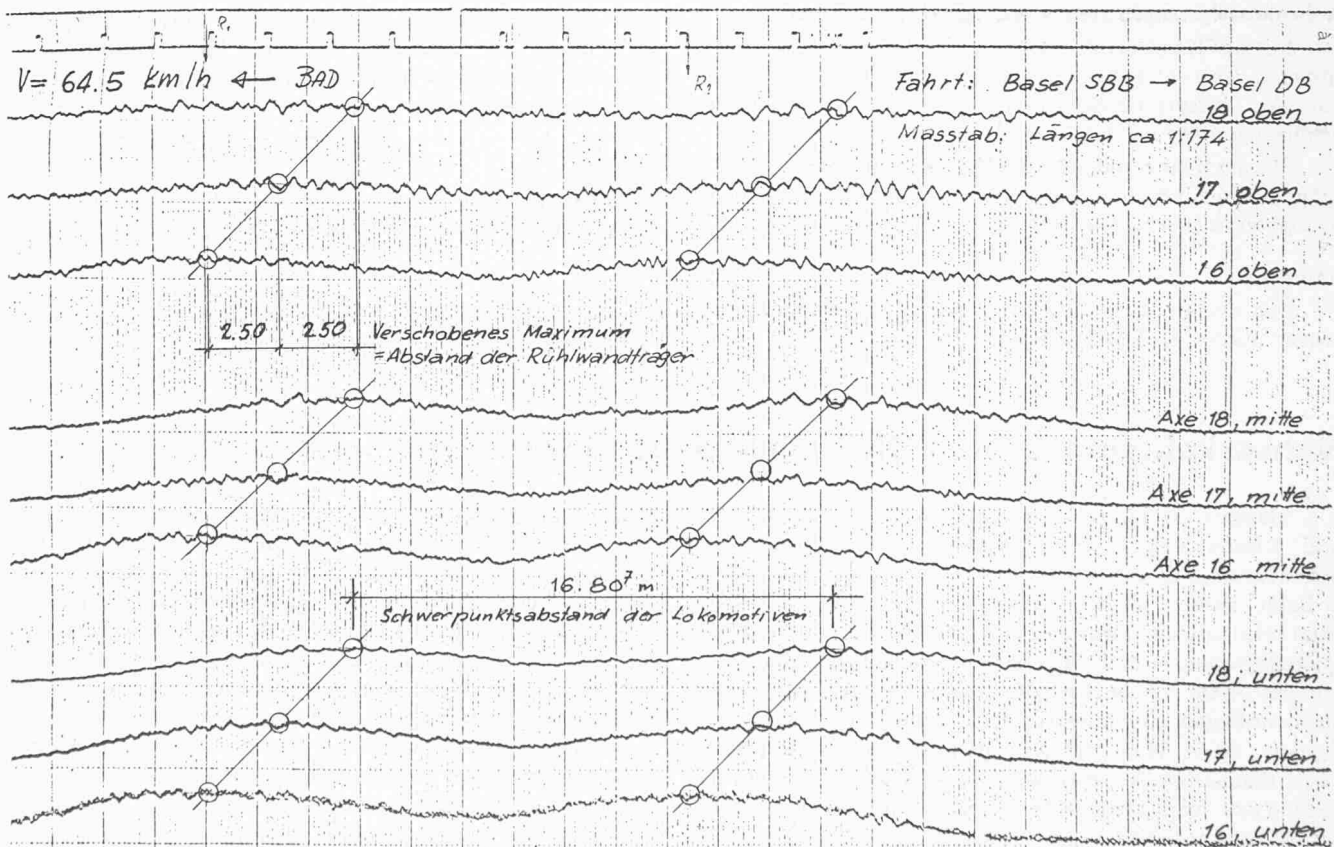 R₁
V= 64.5 km/h ← BAD
R₁
Fahrt: Basel SBB → Basel DB
18, oben
Masstab: Längen ca 1:174
17. oben
16, oben
2.50 2.50
Verschobenes Maximum
=Abstand der Rühlwandträger
Axe 18, mitte
Axe 17, mitte
Axe 16 mitte
16.80⁷ m
Schwerpunktsabstand der Lokomotiven
18, unten
17, unten
16, unten